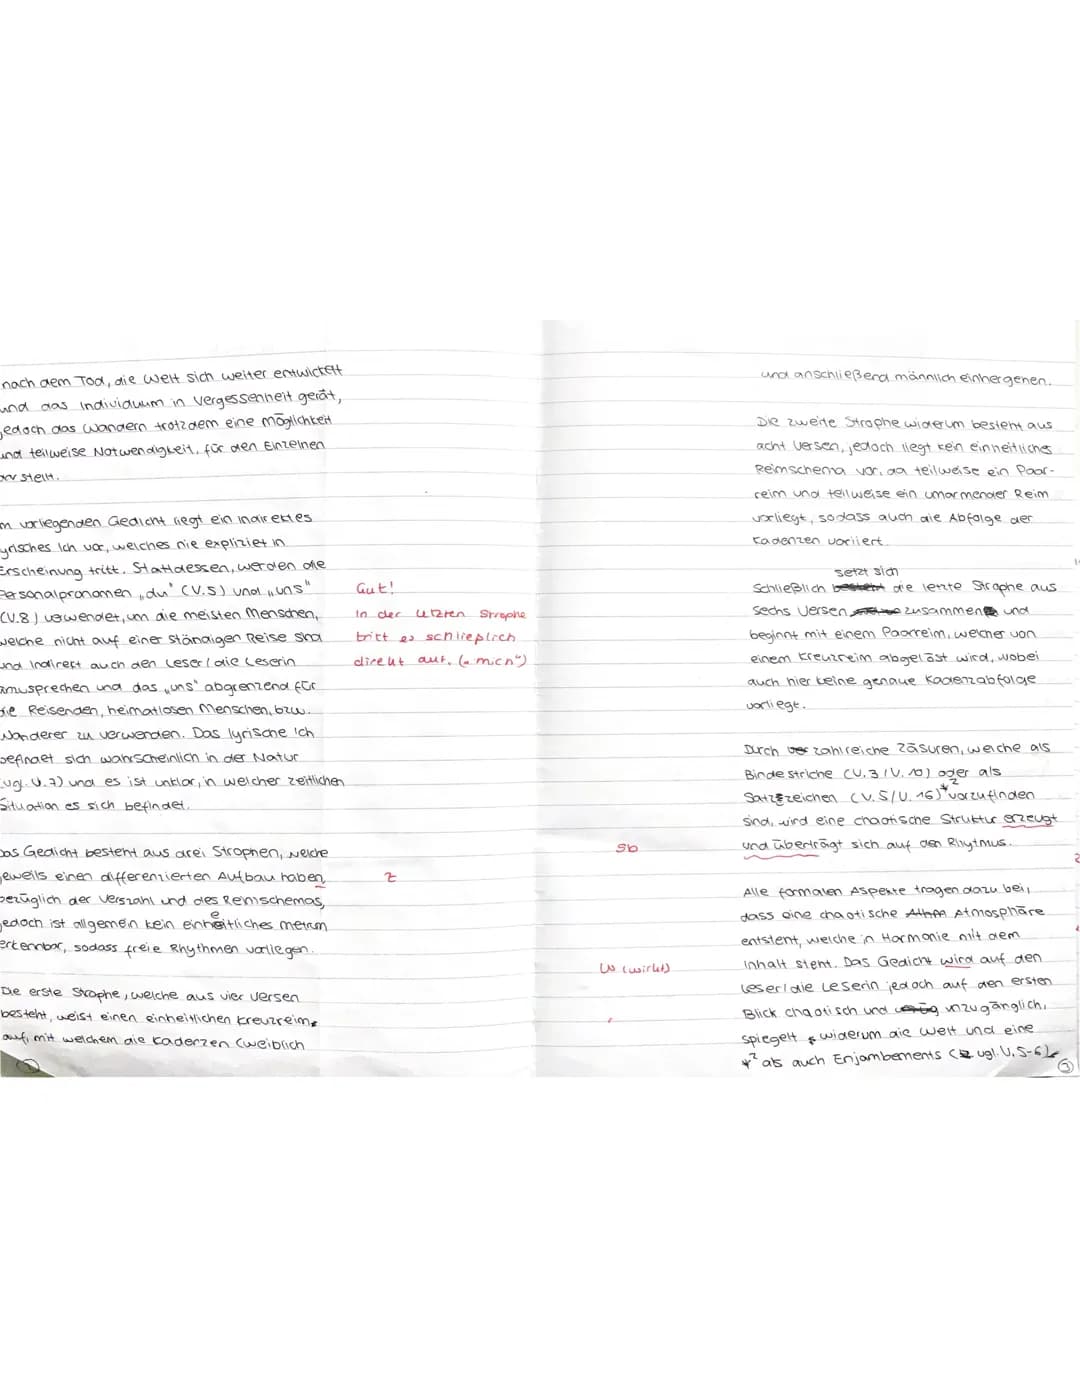 nach dem Tod, die Welt sich weiter entwickelt
und das Individuum in Vergessenheit gerät,
jedoch das Wandern trotzdem eine Möglichkeit
und teilweise Notwendigkeit, für den Einzelnen
darstellt.
m vorliegenden Gedicht liegt ein indirektes
lyrisches Ich vor, welches nie expliziet in
Erscheinung tritt. Stattdessen, werden die
Personalpronomen „du" (V.5) und „uns"
(V.8) verwendet, um die meisten Menschen,
welche nicht auf einer ständigen Reise sind
und indirekt auch den Leser/die Leserin
anzusprechen und das „uns" abgrenzend für
die Reisenden, heimatlosen Menschen, bzw.
Wanderer zu verwenden. Das lyrische Ich
befindet sich wahrscheinlich in der Natur
(vgl. V.7) und es ist unklar, in welcher zeitlichen
Situation es sich befindet.
Das Gedicht besteht aus drei Strophen, welche
jeweils einen differenzierten Aufbau haben
bezüglich der Verszahl und des Reimschemas,
jedoch ist allgemein kein einheitliches metrum
erkennbar, sodass freie Rhythmen vorliegen.
Die erste Strophe, welche aus vier Versen
besteht, weist einen einheitlichen Kreuzreim
auf, mit welchem die Kadenzen (weiblich
Gut!
In der letzten Strophe
tritt es schließlich
direkt auf. („mich")
Z
und anschließend männlich einhergehen.
Die zweite Strophe widerum besteht aus
acht Versen, jedoch liegt kein einheitliches
Reimschema vor, da teilweise ein Paar-
reim und teilweise ein umarmender Reim
vorliegt, sodass auch die Abfolge der
Kadenzen variiert.
setzt sich
Schließlich besteht die letzte Strophe aus
sechs Versen zusammen und
beginnt mit einem Paarreim, welcher von
einem Kreuzreim abgelöst wird, wobei
auch hier keine genaue Kadenzabfolge
vorliegt.
Durch zahlreiche Zäsuren, welche als
Bindestriche (V.3/V.10) oder als
Satzzeichen (V.5/V.16)*² vorzufinden
sind, wird eine chaotische Struktur erzeugt
und überträgt sich auf den Rhytmus.
Sb
Alle formalen Aspekte tragen dazu bei,
dass eine chaotische Atmosphäre
entsteht, welche in Harmonie mit dem
Inhalt steht. Das Gedicht wird auf den
Leser/die Leserin jedoch auf den ersten
Blick chaotisch und unzugänglich,
spiegelt widerum die Welt und eine
W (wirkt)
*² als auch Enjambements (vgl. V.5-6)
2
3